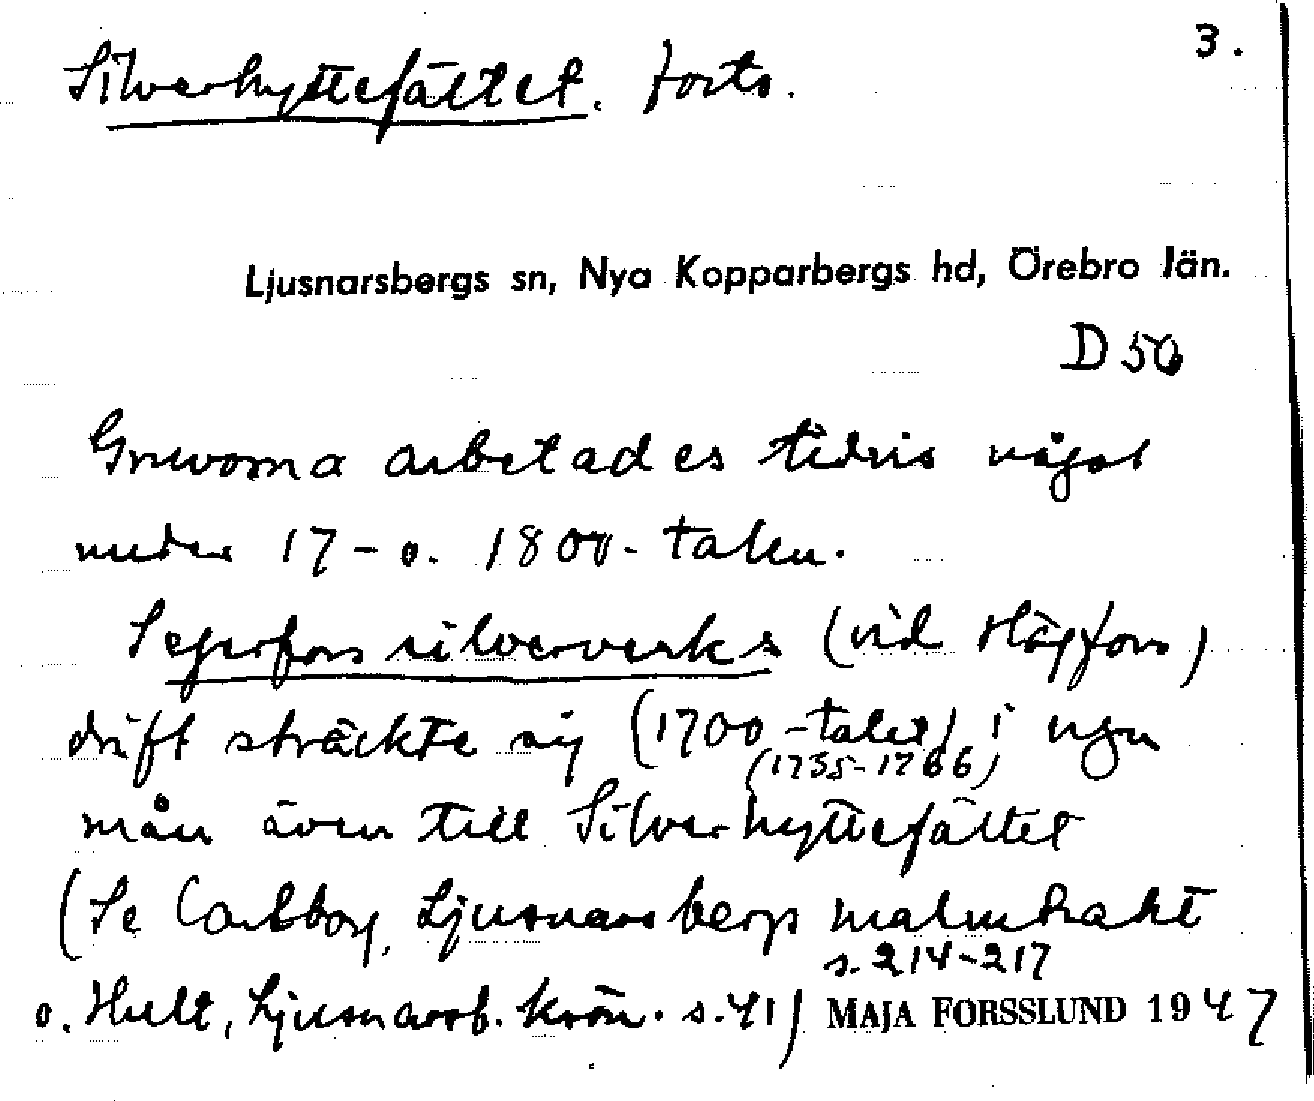 3.
Silverhyttefältet. forts.
Ljusnarsbergs sn, Nya Kopparbergs hd, Örebro län.
D 50
Gruvorna arbetades tidvis något
under 17-o. 1800-talen.
Segerfors silververks (vid Högfors)
drift sträckte sig (1700-talet) i ngn
(1735-1766)
mån även till Silverhyttefältet
(Se Carlborg, Ljusnarsbergs malmtrakt
s. 214-217
o. Hult, Ljusnarsb. krön. s. 41) MAJA FORSSLUND 1947